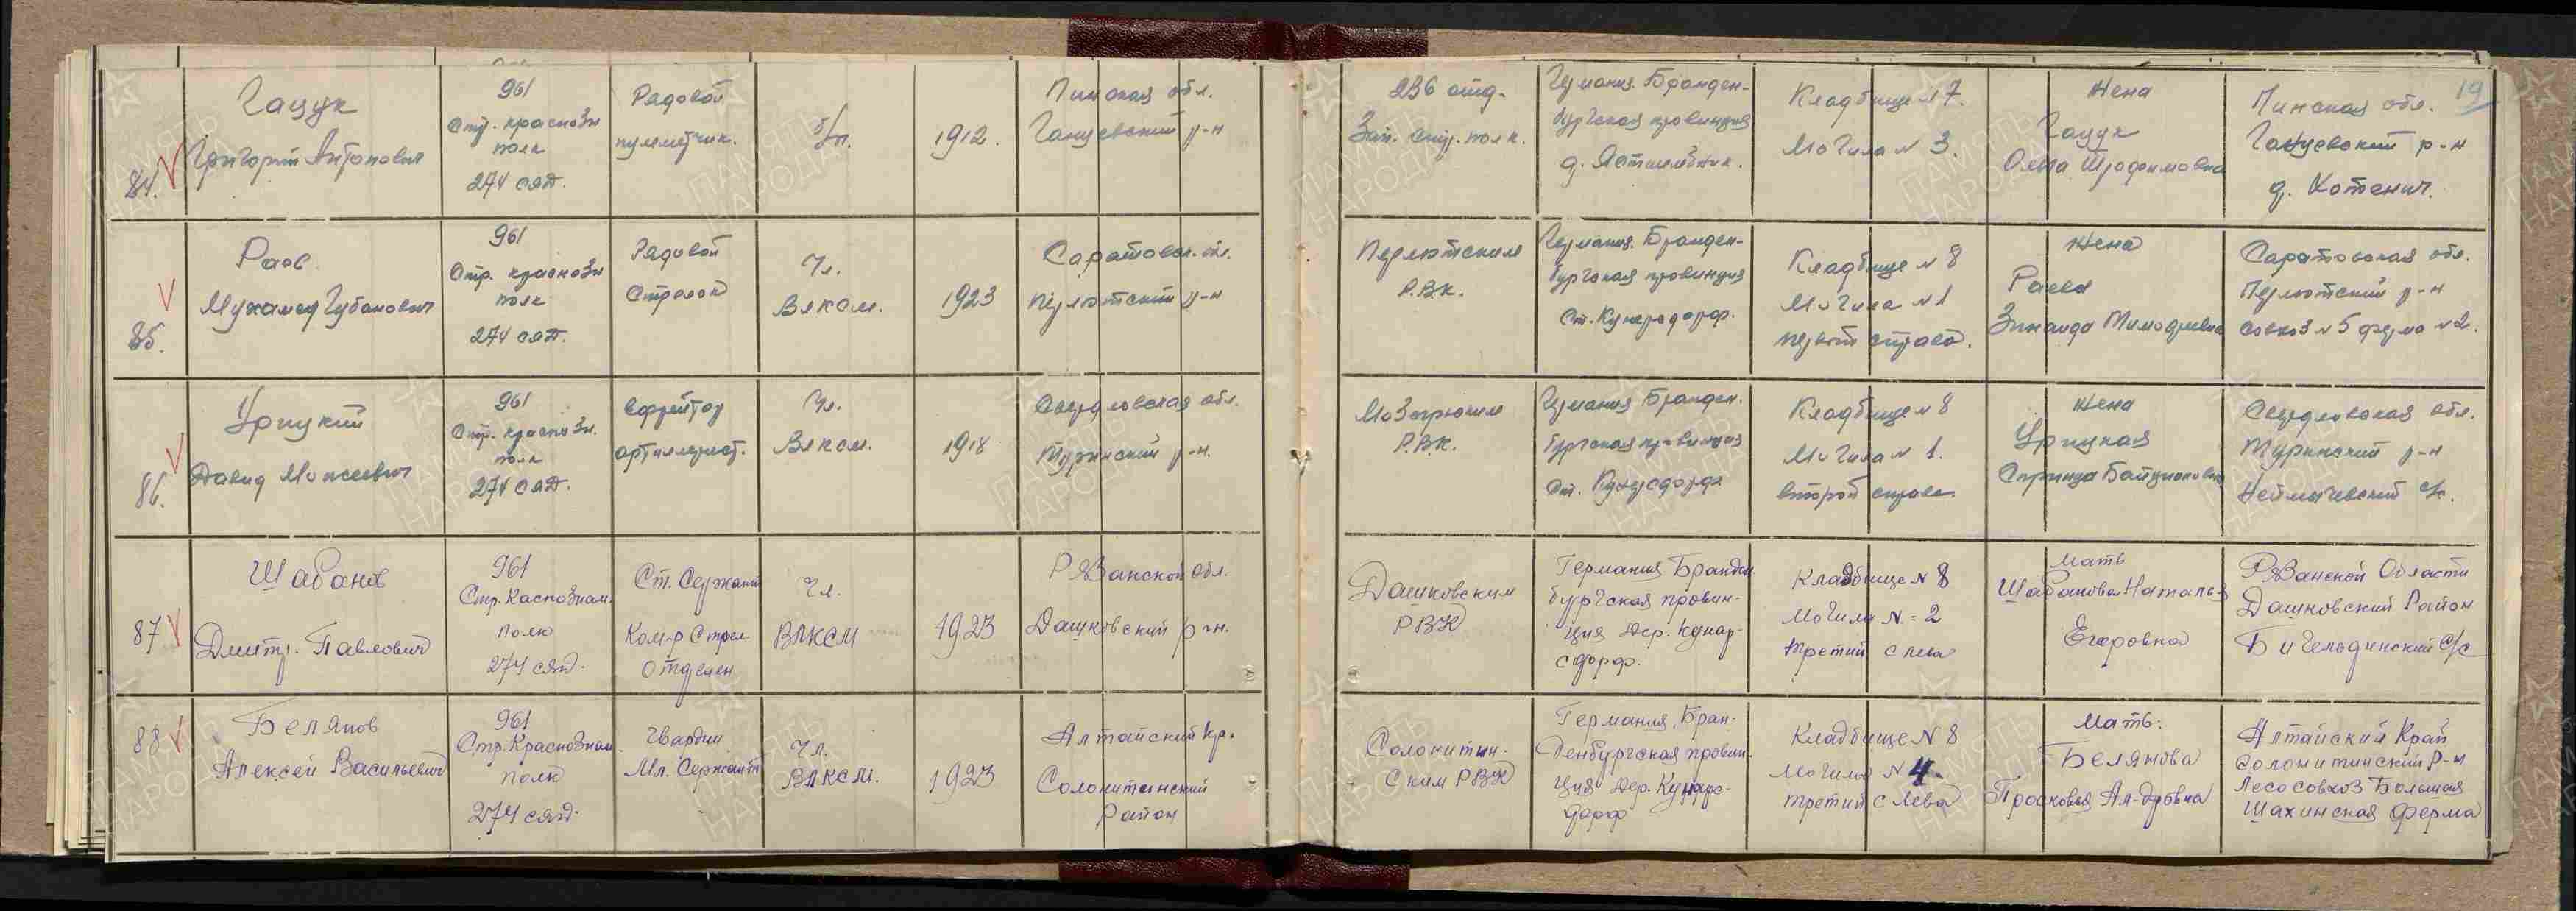 19
84.
Гацук
Григорий Антонович
961
Стр. краснозн
полк
274 сяд.
Рядовой
пулеметчик.
б/п.
1912.
Пинская обл.
Ганцевский р-н
236 отд.
Зап. стр. полк.
Германия. Бранден-
бургская провинция
Кладбище № 7.
Могила № 3.
Жена
Гацук
Ольга Трофимовна
Пинская обл.
Ганцевский р-н
д. Котенич.
85.
Раов
Мухамед Губанович
961
Стр. краснозн
полк
274 сяд.
Рядовой
Стрелок
Чл.
ВЛКСМ.
1923
Саратовск. обл.
Перлютский р-н
Перлютским
Р.В.К.
Германия. Бранден-
бургская провинция
Ст. Кунерсдорф.
Кладбище № 8
Могила № 1
первый справа.
Жена
Раева
Зинаида
Саратовская обл.
Перлютский р-н
совхоз № 5 ферма № 2.
86.
Урицкий
Давид Моисеевич
961
Стр. краснозн.
полк
274 сяд.
Ефрейтор
артиллерист.
Чл.
ВЛКСМ.
1918
Свердловская обл.
Туринский р-н.
Р.В.К.
Германия Бранден.
бургская провинция
Ст. Кунерсдорф
Кладбище № 8
Могила № 1.
второй справа
Жена
Урицкая
Свердловская обл.
Туринский р-н
с/с.
87
Шабанов
Дмитр. Павлович
961
Стр. Каснознам.
полк
274 сяд.
Ст. Сержант
Ком-р Стрел-
Отделен
Чл.
ВЛКСМ
1923
Рязанской обл.
Дашковский р-н.
Дашковским
РВК
Германия Бранден
бургская провин-
ция Дер. Кунар-
сдорф.
Кладбище № 8
Могила № = 2
третий слева
Мать
Шабанова Наталья
Егоровна
Рязанской Области
Дашковский Район
Бигельдинский с/с
88
Белянов
Алексей Васильевич
961
Стр. Краснознам.
полк
274 сяд.
Гвардии
Мл. Сержант
Чл.
ВЛКСМ.
1923
Алтайский кр.
Солонитенский
Район
Солонитин-
ским РВК
Германия. Бран-
денбургская провин-
ция Дер. Кунарс-
дорф
Кладбище № 8
Могила № 4.
третий слева
Мать:
Белянова
Алтайский Край
Солонитийский р-н
Лесосовхоз Большая
Шахинская Ферма